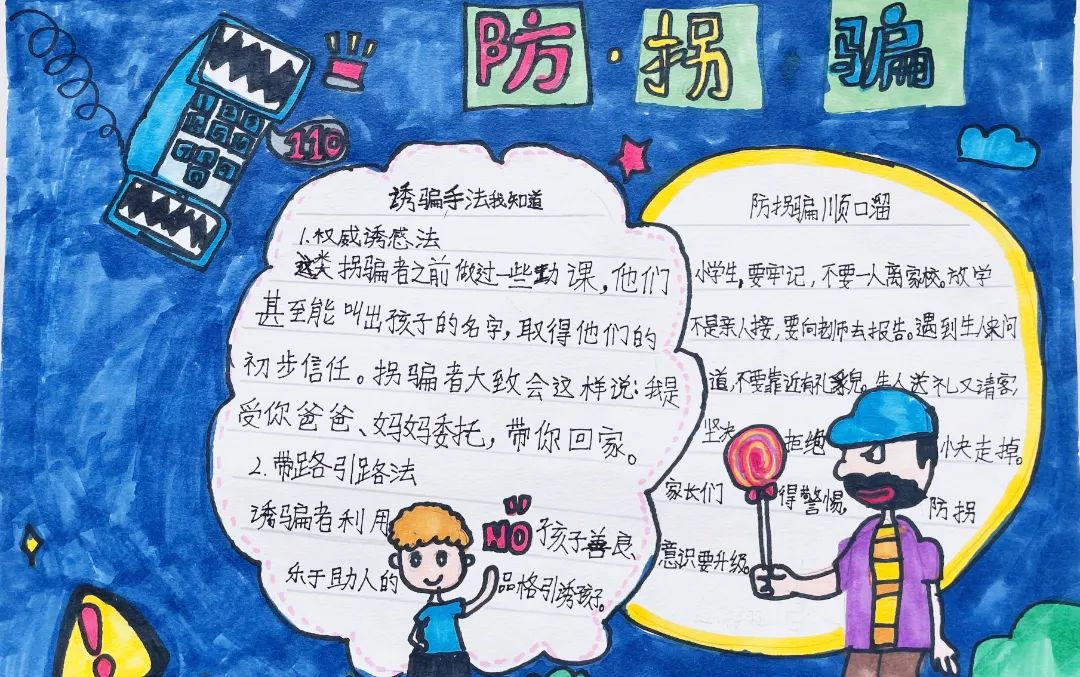 防·拐 骗
110
诱骗手法我知道
1.权威诱惑法
这类拐骗者之前做过一些功课,他们
甚至能叫出孩子的名字,取得他们的
初步信任。拐骗者大致会这样说:我是
受你爸爸、妈妈委托,带你回家。
2.带路引路法
诱骗者利用 孩子善良、
乐于助人的 品格引诱孩子。
NO
防拐骗顺口溜
小学生,要牢记,不要一人离家校。放学
不是亲人接,要向老师去报告。遇到生人来问
道,不要靠近有礼貌。生人送礼又请客,
坚决 拒绝 快走掉。
家长们 得警惕, 防拐
意识要升级。